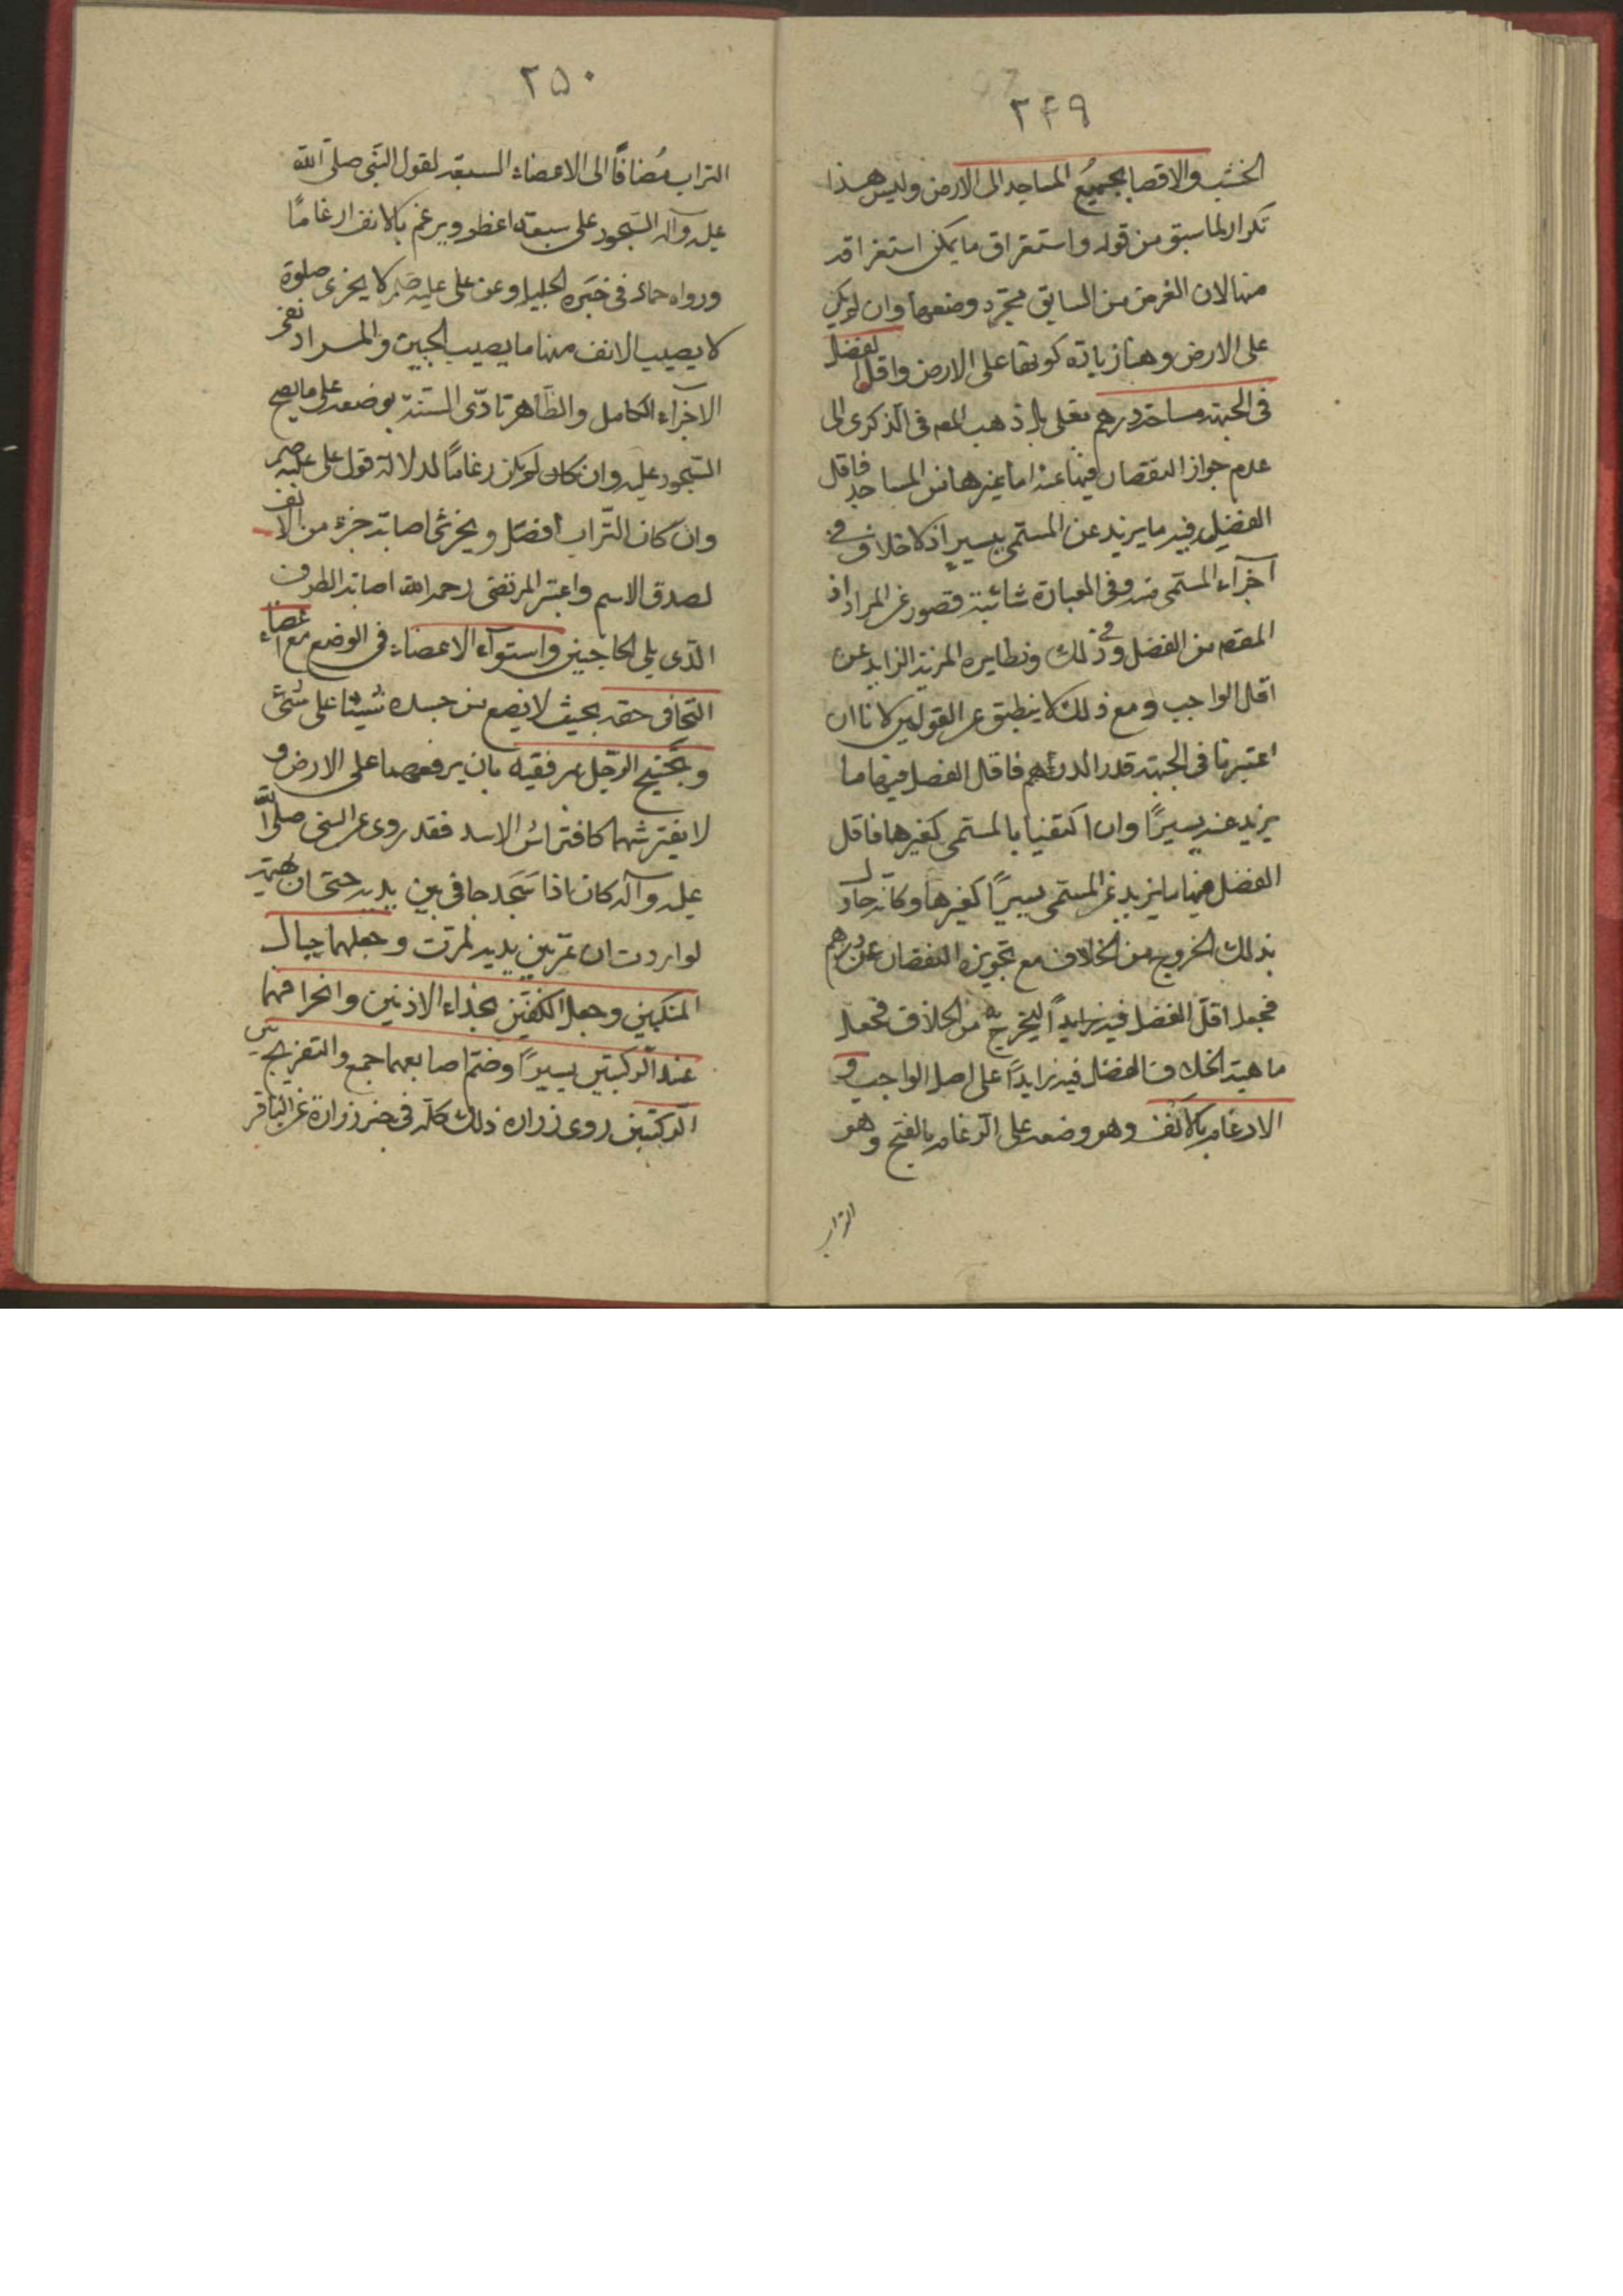 ۲۴۹
الخشب والافضا بجميع المساجد الى الارض وليس هذا
تكرار لما سبق من قوله واستغراق ما يمكن استغراقه
منها لان الغرض من السابق مجرد وضعها وان لم يكن
على الارض وهنا زيادة كونها على الارض واقل الفضل
في الجبهة مساحة درهم بغلي بل ذهب المص في الذكرى الى
عدم جواز النقصان فيها عنه اما غيرها من المساجد فاقل
الفضل فيه ما يزيد عن المسمى بيسير اذ لا خلاف في
اجزاء المسمى منه وفي العبارة شائبة قصور عن المراد اذ
المفهم من الفضل في ذلك ونظايره المزية الزايد عن
اقل الواجب ومع ذلك لا ينطبق على القولين لانا ان
اعتبرنا في الجبهة قدر الدرهم فاقل الفضل فيها ما
يزيد عنه يسيرًا وان اكتفينا بالمسمى كغيرها فاقل
الفضل فيها ما يزيد عن المسمى يسيرًا كغيرها وكانه حاول
بذلك الخروج من الخلاف مع تجويزه النقصان عن درهم
فجعل اقل الفضل فيه زايدًا ليخرج به من الخلاف فجعل
ماهية الخلاف الفضل فيه زايدًا على اصل الواجب و
الارغام بالانف وهو وضعه على الرغام بالفتح وهو
التراب
۲۵۰
التراب مُضافًا الى الاعضاء السبعة لقول النبي صلى الله
عليه وآله السجود على سبعة اعظم ويرغم بالانف ارغامًا
ورواه حماد في خبره الجليل وعن علي عليه السلم لا يجزى صلوة
لا يصيب الانف منها ما يصيب الجبين والمراد نفي
الاجزاء الكامل والظاهر تادّى السنة بوضعه على ما يصح
السجود عليه وان كان لم يكن رغامًا لدلالة قول علي عليه السلم
وان كان التّراب افضل ويجزئ اصابة جزء من الانف
لصدق الاسم واعتبر المرتضى رحمه الله اصابة الطرف
الذى يلى الحاجبين واستوآء الاعضاء في الوضع مع اعضاء
التجافى حقه بحيث لا يضع من جسده شيئا على شئ
وتجنيح الرّجل مرفقيه بان يرفعهما على الارض و
لا يفترشهما كافتراش الاسد فقد روى عن النبي صلى الله
عليه وآله كان اذا سَجَد جافى بين يديه حتى ان بهيمة
لو اردت ان تمرّ بين يديه لمرّت وجعلهما حيال
المنكبين وجعل الكفّين بحذاء الاذنين وانحرافهما
عند الركبتين يسيرًا وضمّ اصابعهما جمع والتفريج بين
الرّكبتين روى زرارة ذلك كلّه في خبر زرارة عن الباقر